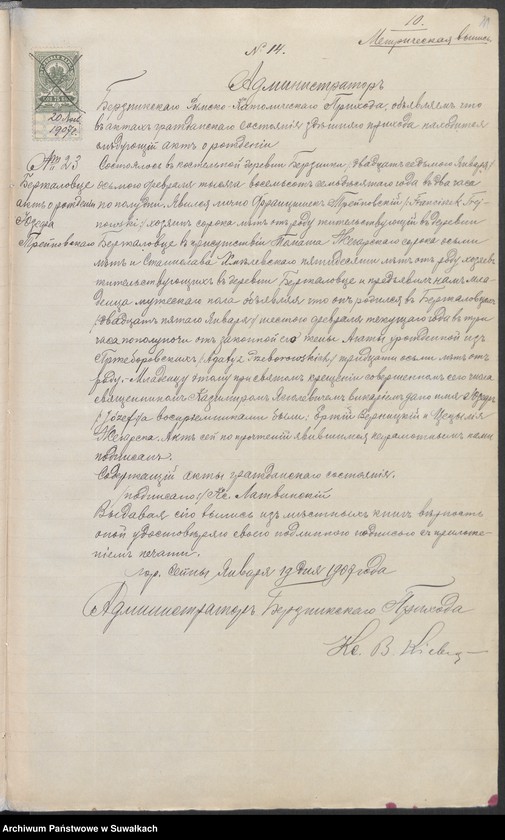 10.
Метрическая выпись
№ 14.
Администраторъ
Бержникскаго Римско-Католическаго Прихода, объявляетъ что
въ актахъ гражданскаго состоянія здѣшняго прихода находится
слѣдующій актъ о рожденіи
20 Янв
1907 г.
№ 23
Берталовце
актъ о рожденіи
Юзефа
Состоялось въ костельной деревни Бержники, двадцать седьмого Января/
осьмого февраля тысяча восемьсотъ семьдесятаго года въ два часа
по полудни. Явился лично Францишекъ /Franciszek
/ хозяинъ сорока лѣтъ отъ роду жительствующій въ деревни
Берталовце въ присутствіи Томаша Жегарскаго сорока осьми
лѣтъ и Станислава пятидесяти лѣтъ отъ роду хозяевъ
жительствующихъ въ деревни Берталовце и предъявилъ намъ мла-
денца мужескаго пола объявляя что онъ родился въ Берталовцахъ
/двадцать пятаго Января/ шестого февраля текущаго года въ три
часа по полуночи отъ законной его жены Агаты урожденной изъ
/Agaty / тридцати осьми лѣтъ отъ
роду. Младенцу этому при святомъ крещеніи совершенномъ сего числа
священникомъ Казимиромъ викаріемъ дано имя Юзефъ
/Józef/ а воспріемниками были: и
Жегарска. Актъ сей по прочтеніи явившимся неграмотнымъ нами
подписанъ.
Содержащій акты гражданскаго состоянія.
/подписалъ/ Кс. Латвинскій
Выдавая сію выпись изъ мѣстныхъ книгъ вѣрность
оной удостовѣряю своего подлинного подписью съ приложе-
ніемъ печати.
гор. Сейны Января 19 дня 1907 года
Администраторъ Бержникскаго Прихода
Кс. В.
Archiwum Państwowe w Suwałkach